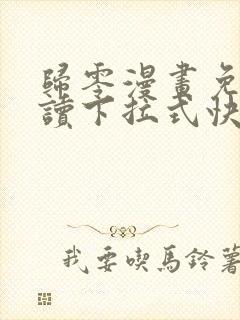 歸零漫畫免
讀下拉式快
我要喫馬鈴薯